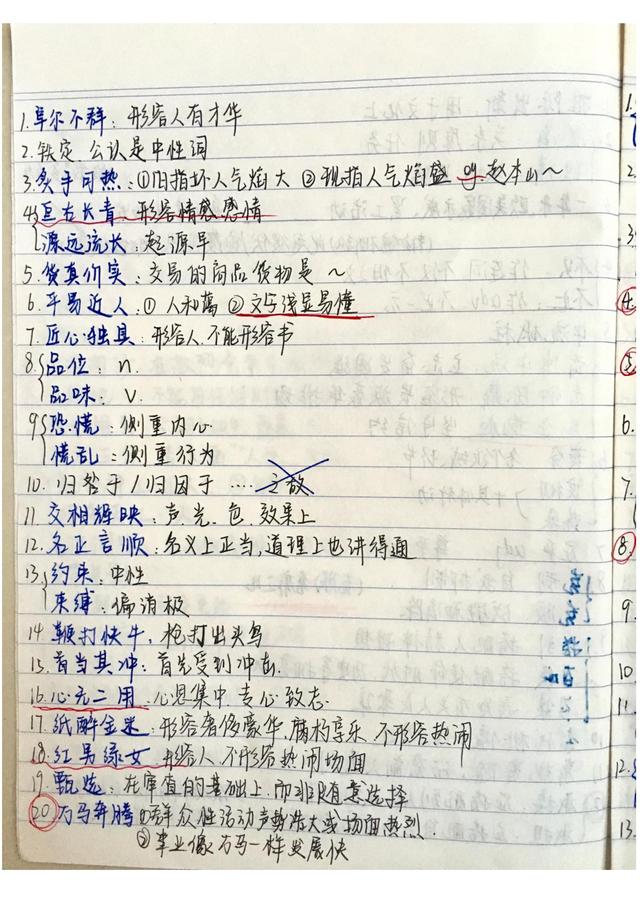 1.卓尔不群：形容人有才华
2.铁定 公认是中性词
3.炙手可热：①旧指坏人气焰大 ②现指人气焰盛 eg.赵本山~
4.亘古长青 形容情感感情
源远流长：起源早
5.货真价实：交易的商品货物是~
6.平易近人：①人和蔼 ②文字浅显易懂
7.匠心独具：形容人.不能形容书
8.品位：n.
品味：v.
9.恐慌：侧重内心
慌乱：侧重行为
10.归咎于/归因于 …… 之故
11.交相辉映：声.光.色.效果上
12.名正言顺：名义上正当,道理上也讲得通
13.约束：中性
束缚：偏消极
14.鞭打快牛，枪打出头鸟
15.首当其冲：首先受到冲击.
16.心无二用.心思集中.专心致志.
17.纸醉金迷：形容奢侈豪华.腐朽享乐.不形容热闹
18.红男绿女 形容人.不形容热闹场面
19.甄选：在审值的基础上.而非随意选择
20 万马奔腾 ①群众性活动声势浩大或场面热烈.
②事业像万马一样发展快
1.
2.
3.
4.
5
6.
7.
8.
9.
10.
11.
12.
13.